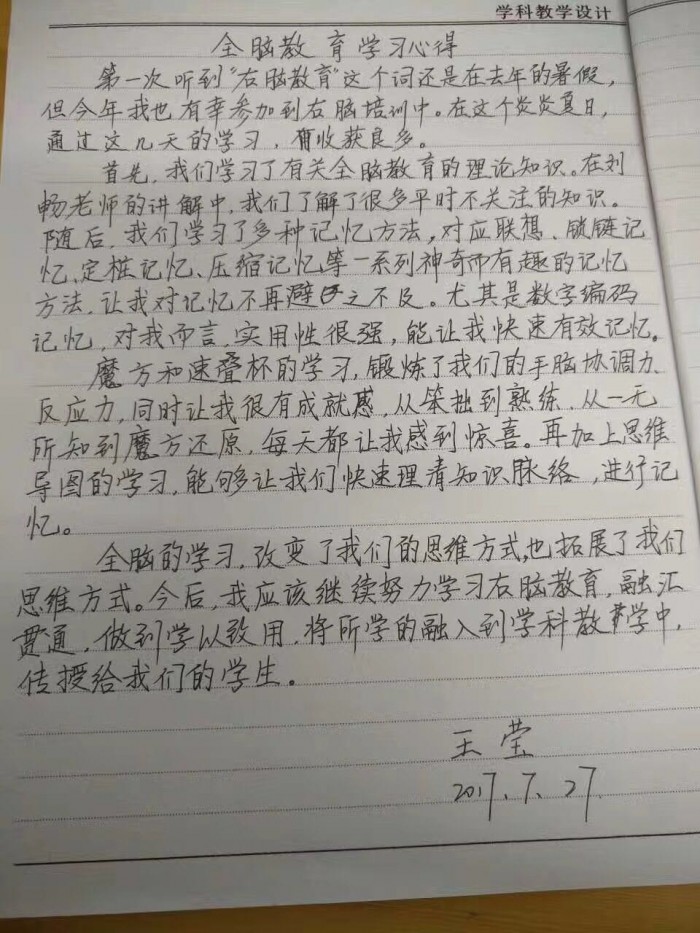 学科教学设计
全脑教育学习心得
第一次听到“右脑教育”这个词还是在去年的暑假,
但今年我也有幸参加到右脑培训中。在这个炎炎夏日,
通过这几天的学习,有收获良多。
首先,我们学习了有关全脑教育的理论知识。在刘
畅老师的讲解中,我们了解了很多平时不关注的知识。
随后,我们学习了多种记忆方法,对应联想、锁链记
忆、定桩记忆、压缩记忆等一系列神奇而有趣的记忆
方法,让我对记忆不再避之不及。尤其是数字编码
记忆,对我而言,实用性很强,能让我快速有效记忆。
魔方和速叠杯的学习,锻炼了我们的手脑协调力、
反应力,同时让我很有成就感,从笨拙到熟练、从一无
所知到魔方还原,每天都让我感到惊喜。再加上思维
导图的学习,能够让我们快速理清知识脉络,进行记
忆。
全脑的学习,改变了我们的思维方式,也拓展了我们
思维方式。今后,我应该继续努力学习右脑教育,融汇
贯通,做到学以致用,将所学的融入到学科教学中,
传授给我们的学生。
王莹
2017.7.27.